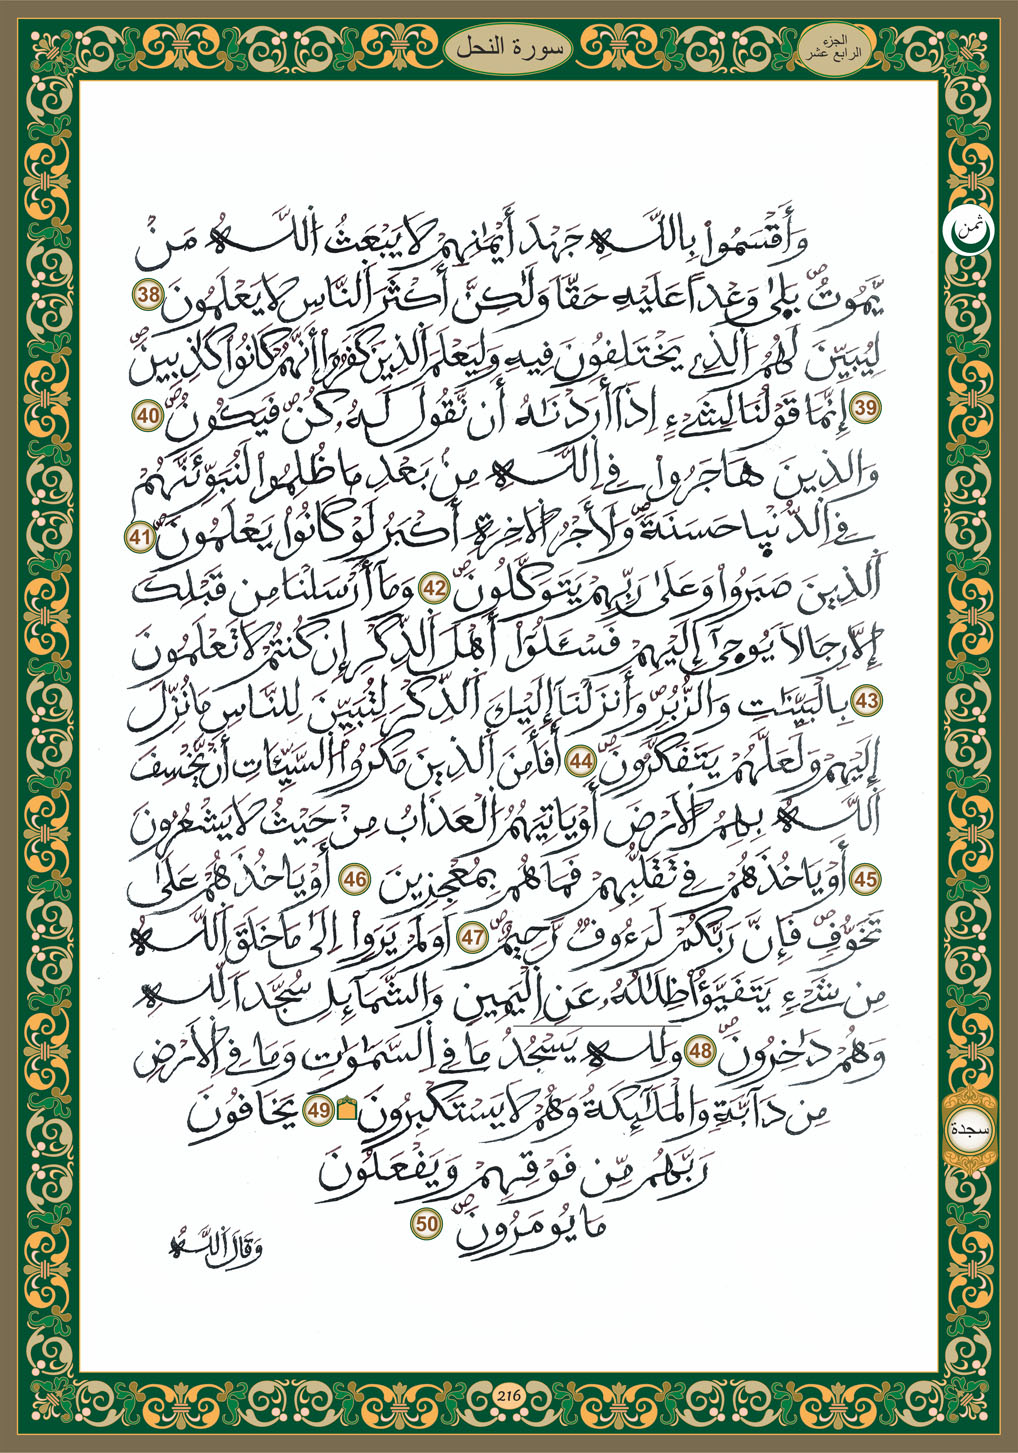 سورة النحل
الجزء
الرابع عشر
ثمن
وَأَقْسَمُواْ بِاللَّهِ جَهْدَ أَيْمَٰنِهِمْ لَا يَبْعَثُ اللَّهُ مَنْ
يَّمُوتُ ۖ بَلَىٰ وَعْداً عَلَيْهِ حَقّاً وَلَٰكِنَّ أَكْثَرَ النَّاسِ لَا يَعْلَمُونَ 38
لِيُبَيِّنَ لَهُمُ الَّذِي يَخْتَلِفُونَ فِيهِ وَلِيَعْلَمَ الَّذِينَ كَفَرُواْ أَنَّهُمْ كَانُواْ كَٰذِبِينَ ۖ
39 إِنَّمَا قَوْلُنَا لِشَيْءٍ إِذَا أَرَدْنَٰهُ أَن نَّقُولَ لَهُ كُن ۖ فَيَكُونُ ۖ 40
وَالَّذِينَ هَاجَرُواْ فِي اللَّهِ مِنۢ بَعْدِ مَا ظُلِمُواْ لَنُبَوِّئَنَّهُمْ
فِي الدُّنْيَا حَسَنَةً ۖ وَلَأَجْرُ الْآخِرَةِ أَكْبَرُ لَوْ كَانُواْ يَعْلَمُونَ ۖ 41
الَّذِينَ صَبَرُواْ وَعَلَىٰ رَبِّهِمْ يَتَوَكَّلُونَ ۖ 42 وَمَا أَرْسَلْنَا مِن قَبْلِكَ
إِلَّا رِجَالاً يُوحَىٰ إِلَيْهِمْ فَسْـَٔلُواْ أَهْلَ الذِّكْرِ إِن كُنتُمْ لَا تَعْلَمُونَ
43 بِالْبَيِّنَٰتِ وَالزُّبُرِ ۖ وَأَنزَلْنَا إِلَيْكَ الذِّكْرَ لِتُبَيِّنَ لِلنَّاسِ مَا نُزِّلَ
إِلَيْهِمْ وَلَعَلَّهُمْ يَتَفَكَّرُونَ ۖ 44 أَفَأَمِنَ الَّذِينَ مَكَرُواْ السَّيِّـَٔاتِ أَنْ يَّخْسِفَ
اللَّهُ بِهِمُ الْأَرْضَ أَوْ يَاتِيَهُمُ الْعَذَابُ مِنْ حَيْثُ لَا يَشْعُرُونَ
45 أَوْ يَاخُذَهُمْ فِي تَقَلُّبِهِمْ فَمَا هُم بِمُعْجِزِينَ 46 أَوْ يَاخُذَهُمْ عَلَىٰ
تَخَوُّفٍ ۖ فَإِنَّ رَبَّكُمْ لَرَءُوفٌ رَّحِيمٌ ۖ 47 أَوَلَمْ يَرَوْاْ إِلَىٰ مَا خَلَقَ اللَّهُ
مِن شَيْءٍ يَتَفَيَّؤُاْ ظِلَٰلُهُ عَنِ الْيَمِينِ وَالشَّمَآئِلِ سُجَّداً لِّلهِ
وَهُمْ دَٰخِرُونَ ۖ 48 وَلِلهِ يَسْجُدُ مَا فِي السَّمَٰوَٰتِ وَمَا فِي الْأَرْضِ
مِن دَآبَّةٍ وَالْمَلَٰٓئِكَةُ وَهُمْ لَا يَسْتَكْبِرُونَ 49 يَخَافُونَ
رَبَّهُم مِّن فَوْقِهِمْ وَيَفْعَلُونَ
مَا يُومَرُونَ ۖ 50
وَقَالَ اللَّهُ
سجدة
216